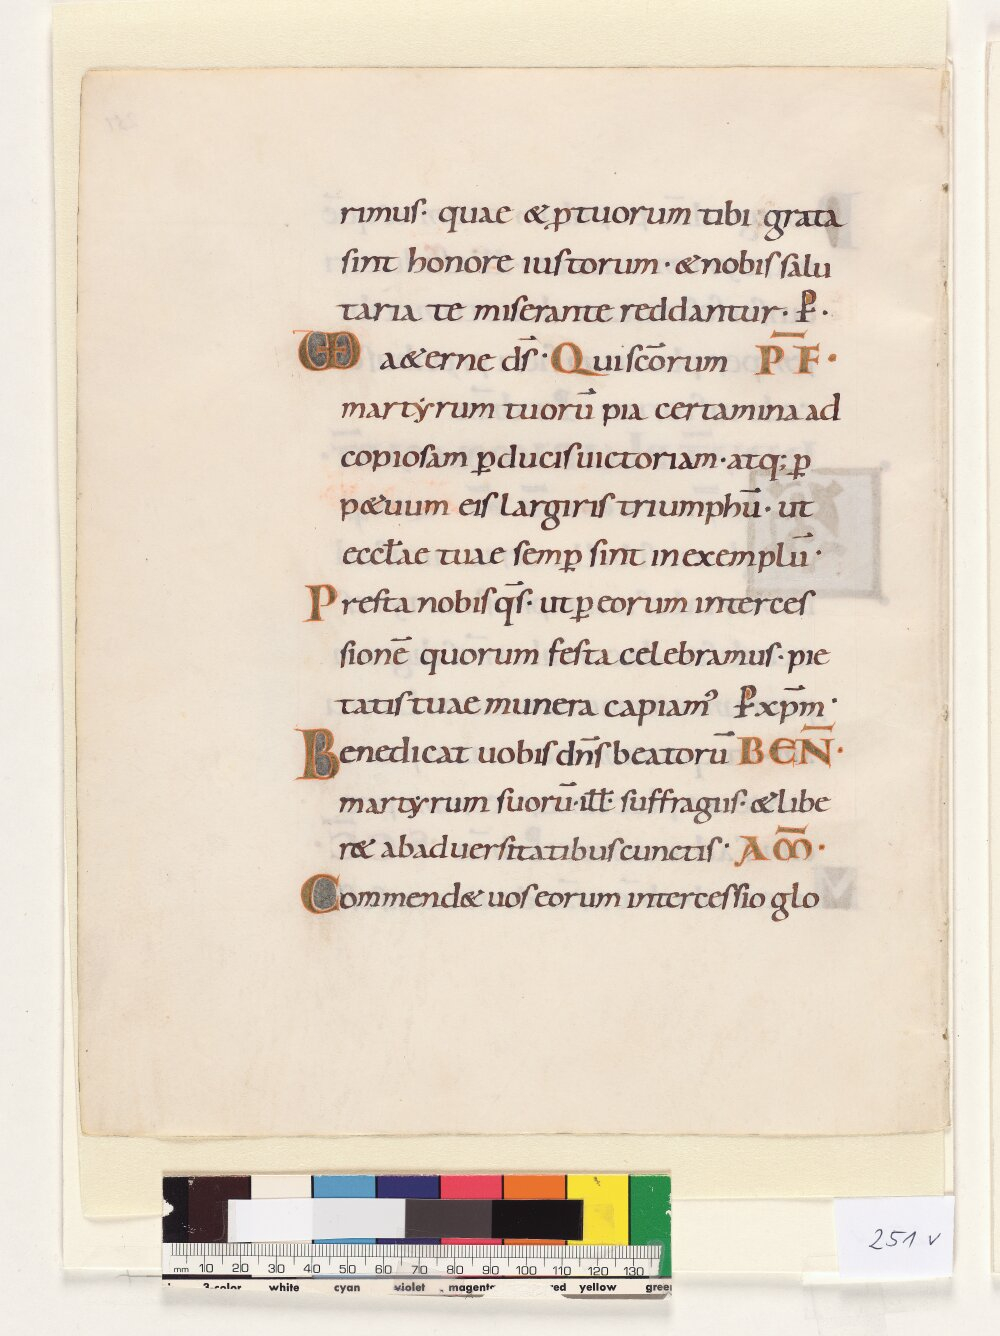 rimus· quae & ꝓtuorum tibi grata
sint honore iustorum· & nobis salu
taria te miserante reddantur· P̄·
VD a&erne dś· Qui sc̄orum P̄F̄·
martẏrum tuorū pia certamina ad
copiosam ꝑducis uictoriam· atq; ꝑ
p&uum eis largiris triumphū· ut
eccłae tuae semꝑ sint in exemplū·
Presta nobis q̄s· ut ꝑ eorum interces
sionē quorum festa celebramus· pie
tatis tuae munera capiamꝰ P̄ xp̄m·
Benedicat uobis dn̄s beatorū BEN̄·
martyrum suorū· ił̄ł· suffragiis· & libe
r& ab aduersitatibus cunctis· AM̄·
Commend& uos eorum intercessio glo
251 v
mm 10 20 30 40 50 60 70 80 90 100 110 120 130
3-color white cyan violet magenta red yellow green